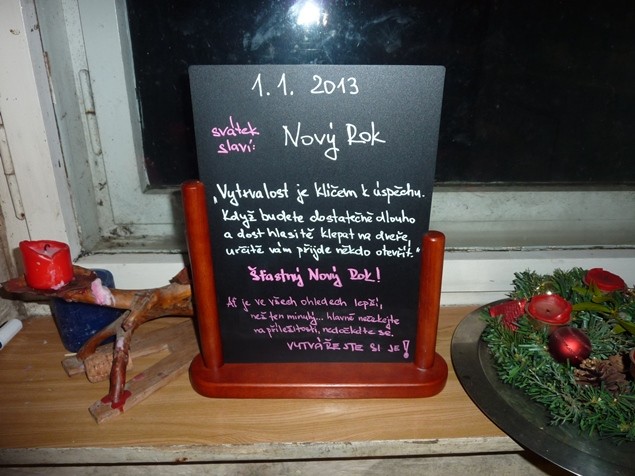 1.1. 2013
svátek
slaví:
Nový Rok
„Vytrvalost je klíčem k úspěchu.
Když budete dostatečně dlouho
a dost hlasitě klepat na dveře,
určitě vám přijde někdo otevřít."
Šťastný Nový Rok!
Ať je ve všech ohledech lepší,
než ten minulý... hlavně nečekejte
na příležitosti, nedočkáte se.
VYTVÁŘEJTE SI JE!